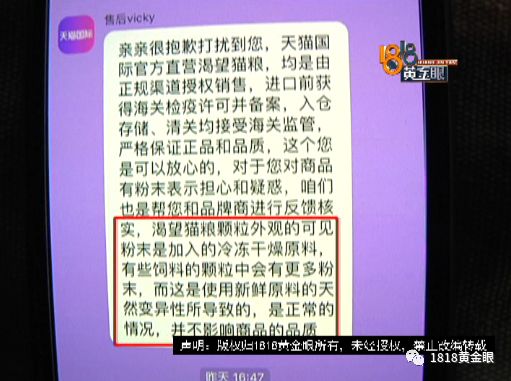 售后vicky
天猫国际
亲亲很抱歉打扰到您，天猫国
际官方直营渴望猫粮，均是由
正规渠道授权销售，进口前获
得海关检疫许可并备案，入仓
存储、清关均接受海关监管，
严格保证正品和品质，这个您
是可以放心的，对于您对商品
有粉末表示担心和疑惑，咱们
也是帮您和品牌商进行反馈核
实，渴望猫粮颗粒外观的可见
粉末是加入的冷冻干燥原料，
有些饲料的颗粒中会有更多粉
末，而这是使用新鲜原料的天
然变异性所导致的，是正常的
情况，并不影响商品的品质
1818
黄金眼
声明：版权归1818黄金眼所有，未经授权，禁止改编转载
1818黄金眼
昨天 16:47